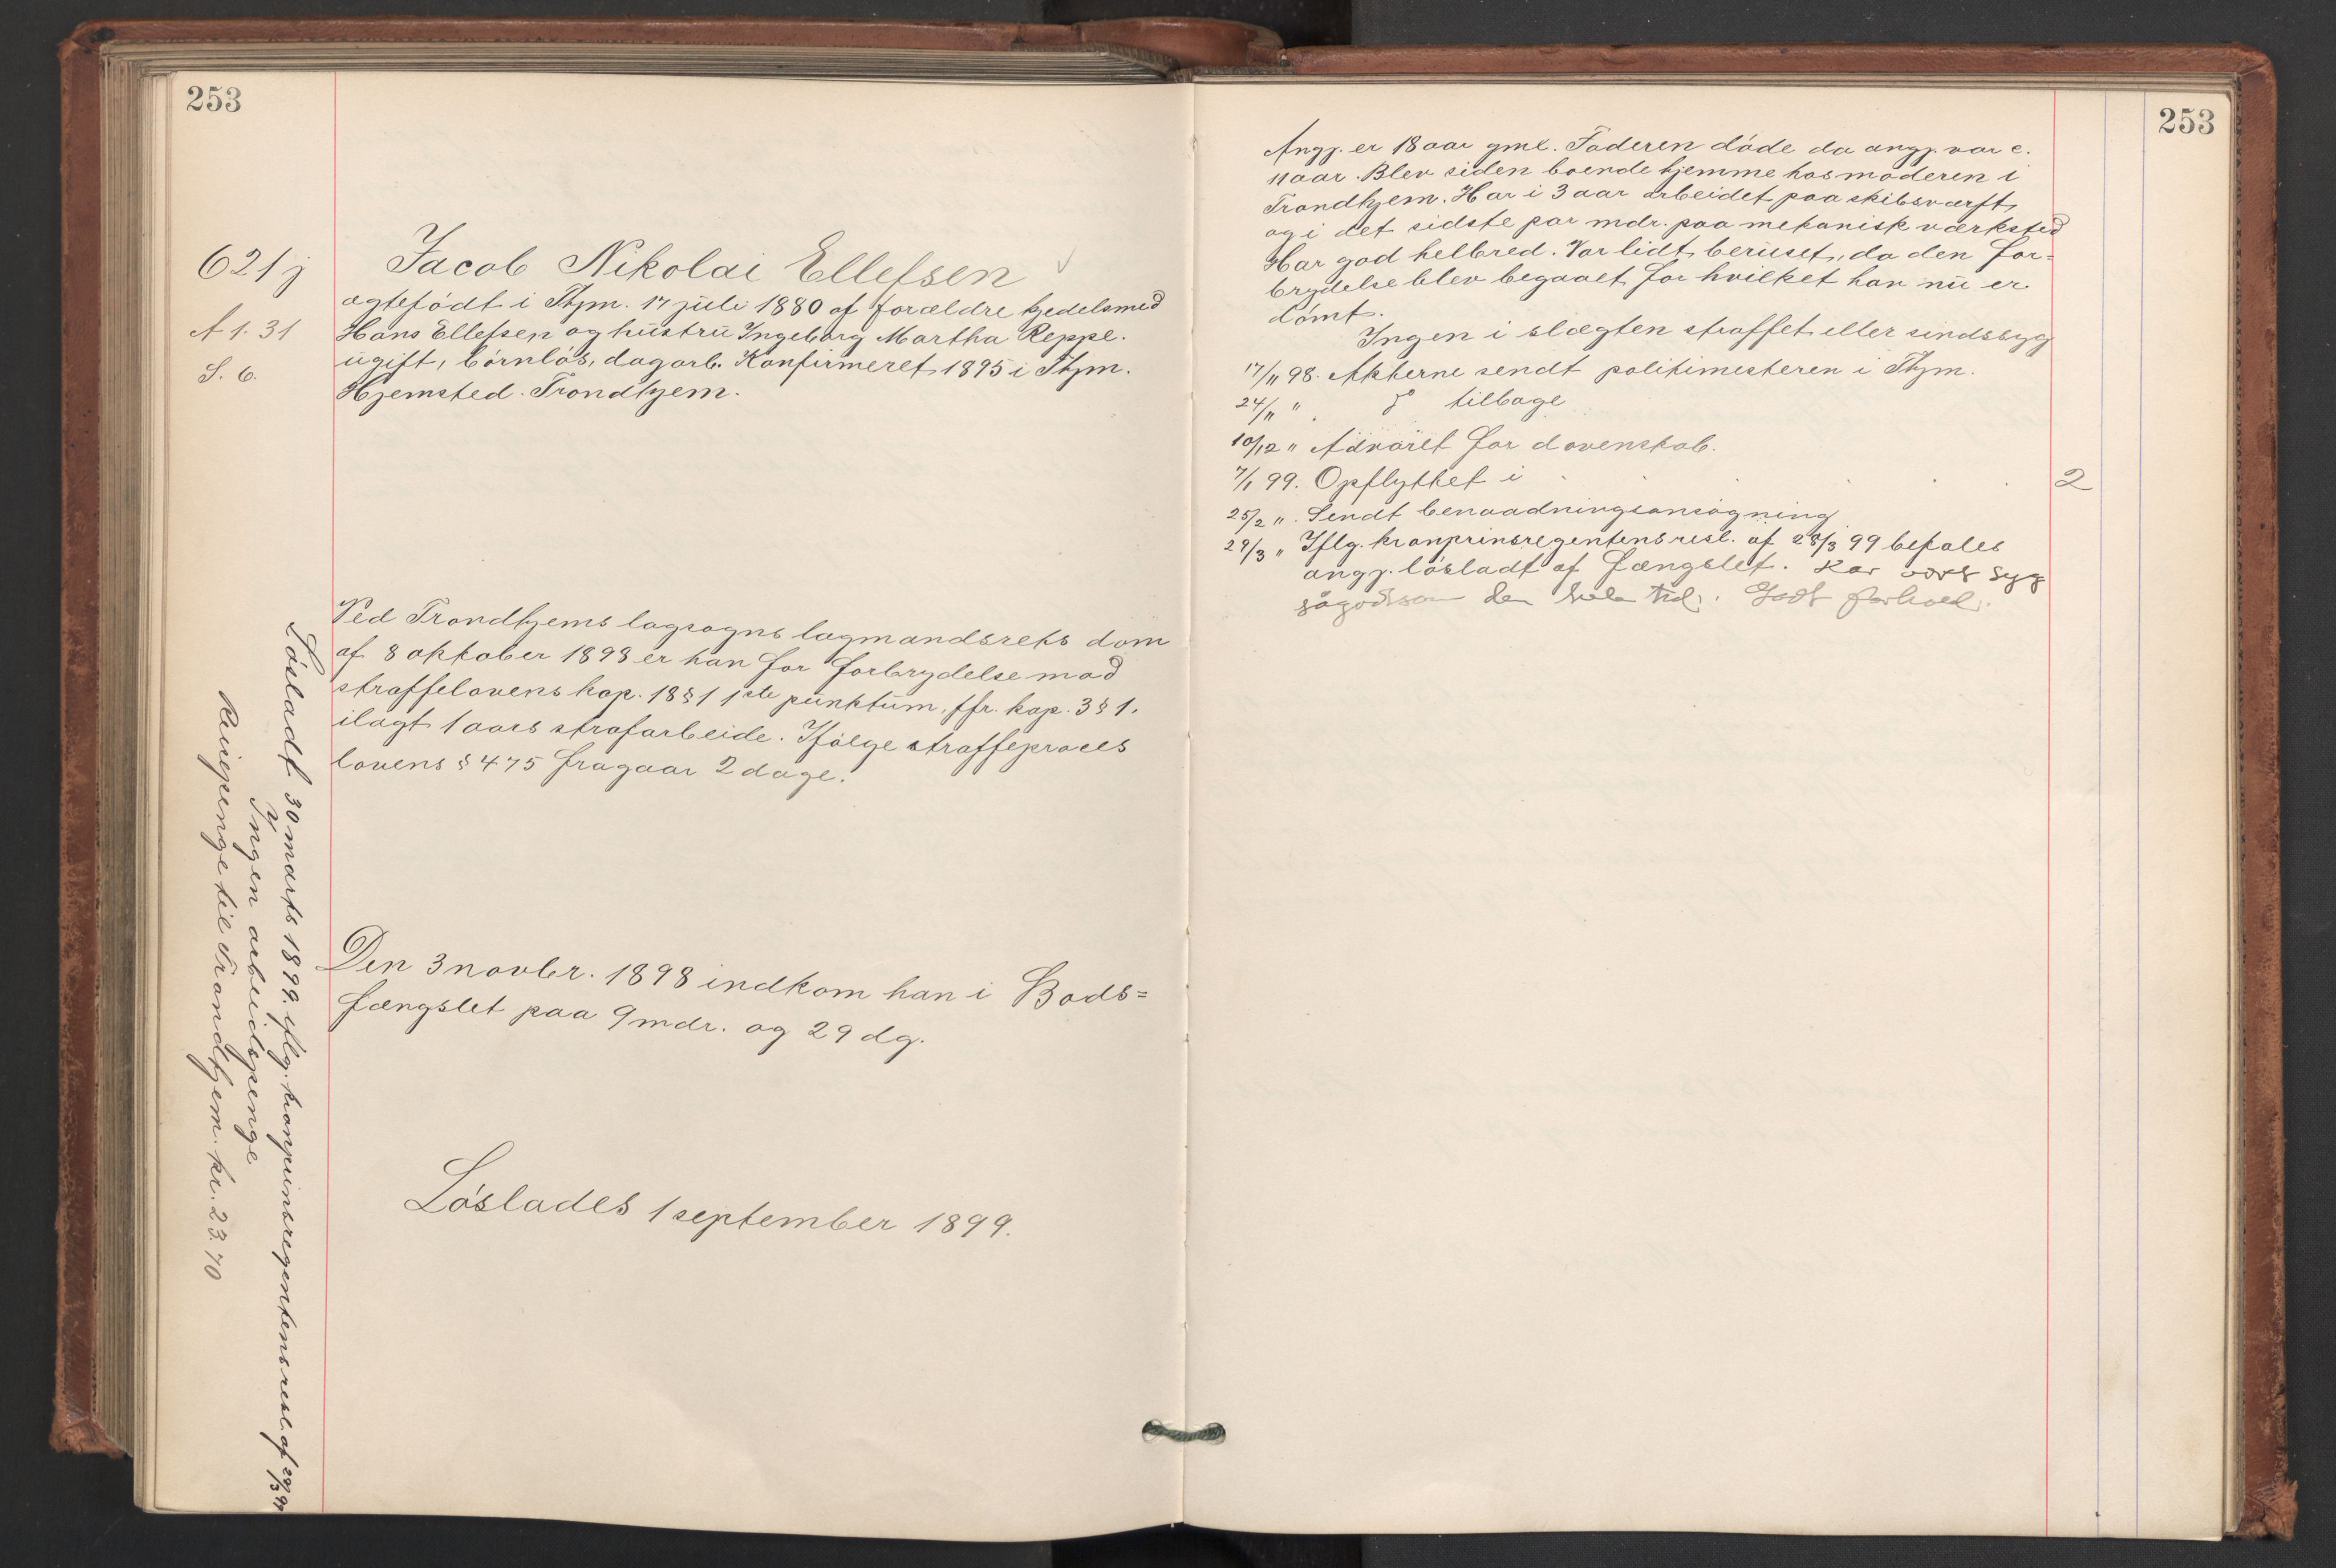 253
621 j
A 1. 31
S. 6.
Jacob Nikolai Ellefsen
ægtefödt i Thjm. 17 juli 1880 af forældre kjedelsmed
Hans Ellefsen og hustru Ingeborg Martha Reppe.
ugift, börnlös, dagarb. Konfirmeret 1895 i Thjm.
Hjemsted. Trondhjem.
Ved Trondhjems lagsogns lagmandsrets dom
af 8 oktober 1898 er han for forbrydelse mod
straffelovens kap. 18 § 1 1ste punktum, jfr. kap. 3 § 1.
ilagt 1 aars strafarbeide. Ifölge straffeproces
lovens § 475 fragaar 2 dage.
Den 3 novbr. 1898 indkom han i Bods=
fængslet paa 9 mdr. og 29 dg.
Löslades 1 september 1899.
Lösladt 30 marts 1899 iflg. kronprinsregentens resl. af 28/3 99
Ingen arbeidspenge
Reisepenge til Trondhjem. kr. 23.70
253
Angj. er 18 aar gml. Faderen döde da angj. var c.
11 aar. Blev siden boende hjemme hos moderen i
Trondhjem. Har i 3 aar arbeidet paa skibsværft,
og i det sidste par mdr. paa mekanisk værksted
Har god helbred. Var lidt beruset, da den for=
brydelse blev begaaet for hvilket han nu er
dömt.
Ingen i slægten straffet eller sindssyg
17/11 98. Akterne sendt politimesteren i Thjm.
24/11 " do tilbage
10/12 " Advaret for dovenskab.
7/1 99. Opflyttet i 2
25/2 ". Sendt benaadningsansögning
29/3 " Iflg. kronprinsregentens resl. af 28/3 99 befales
angj. lösladt af fængslet. Har vært syg
sågodtsom den hele tid. Godt forhold.